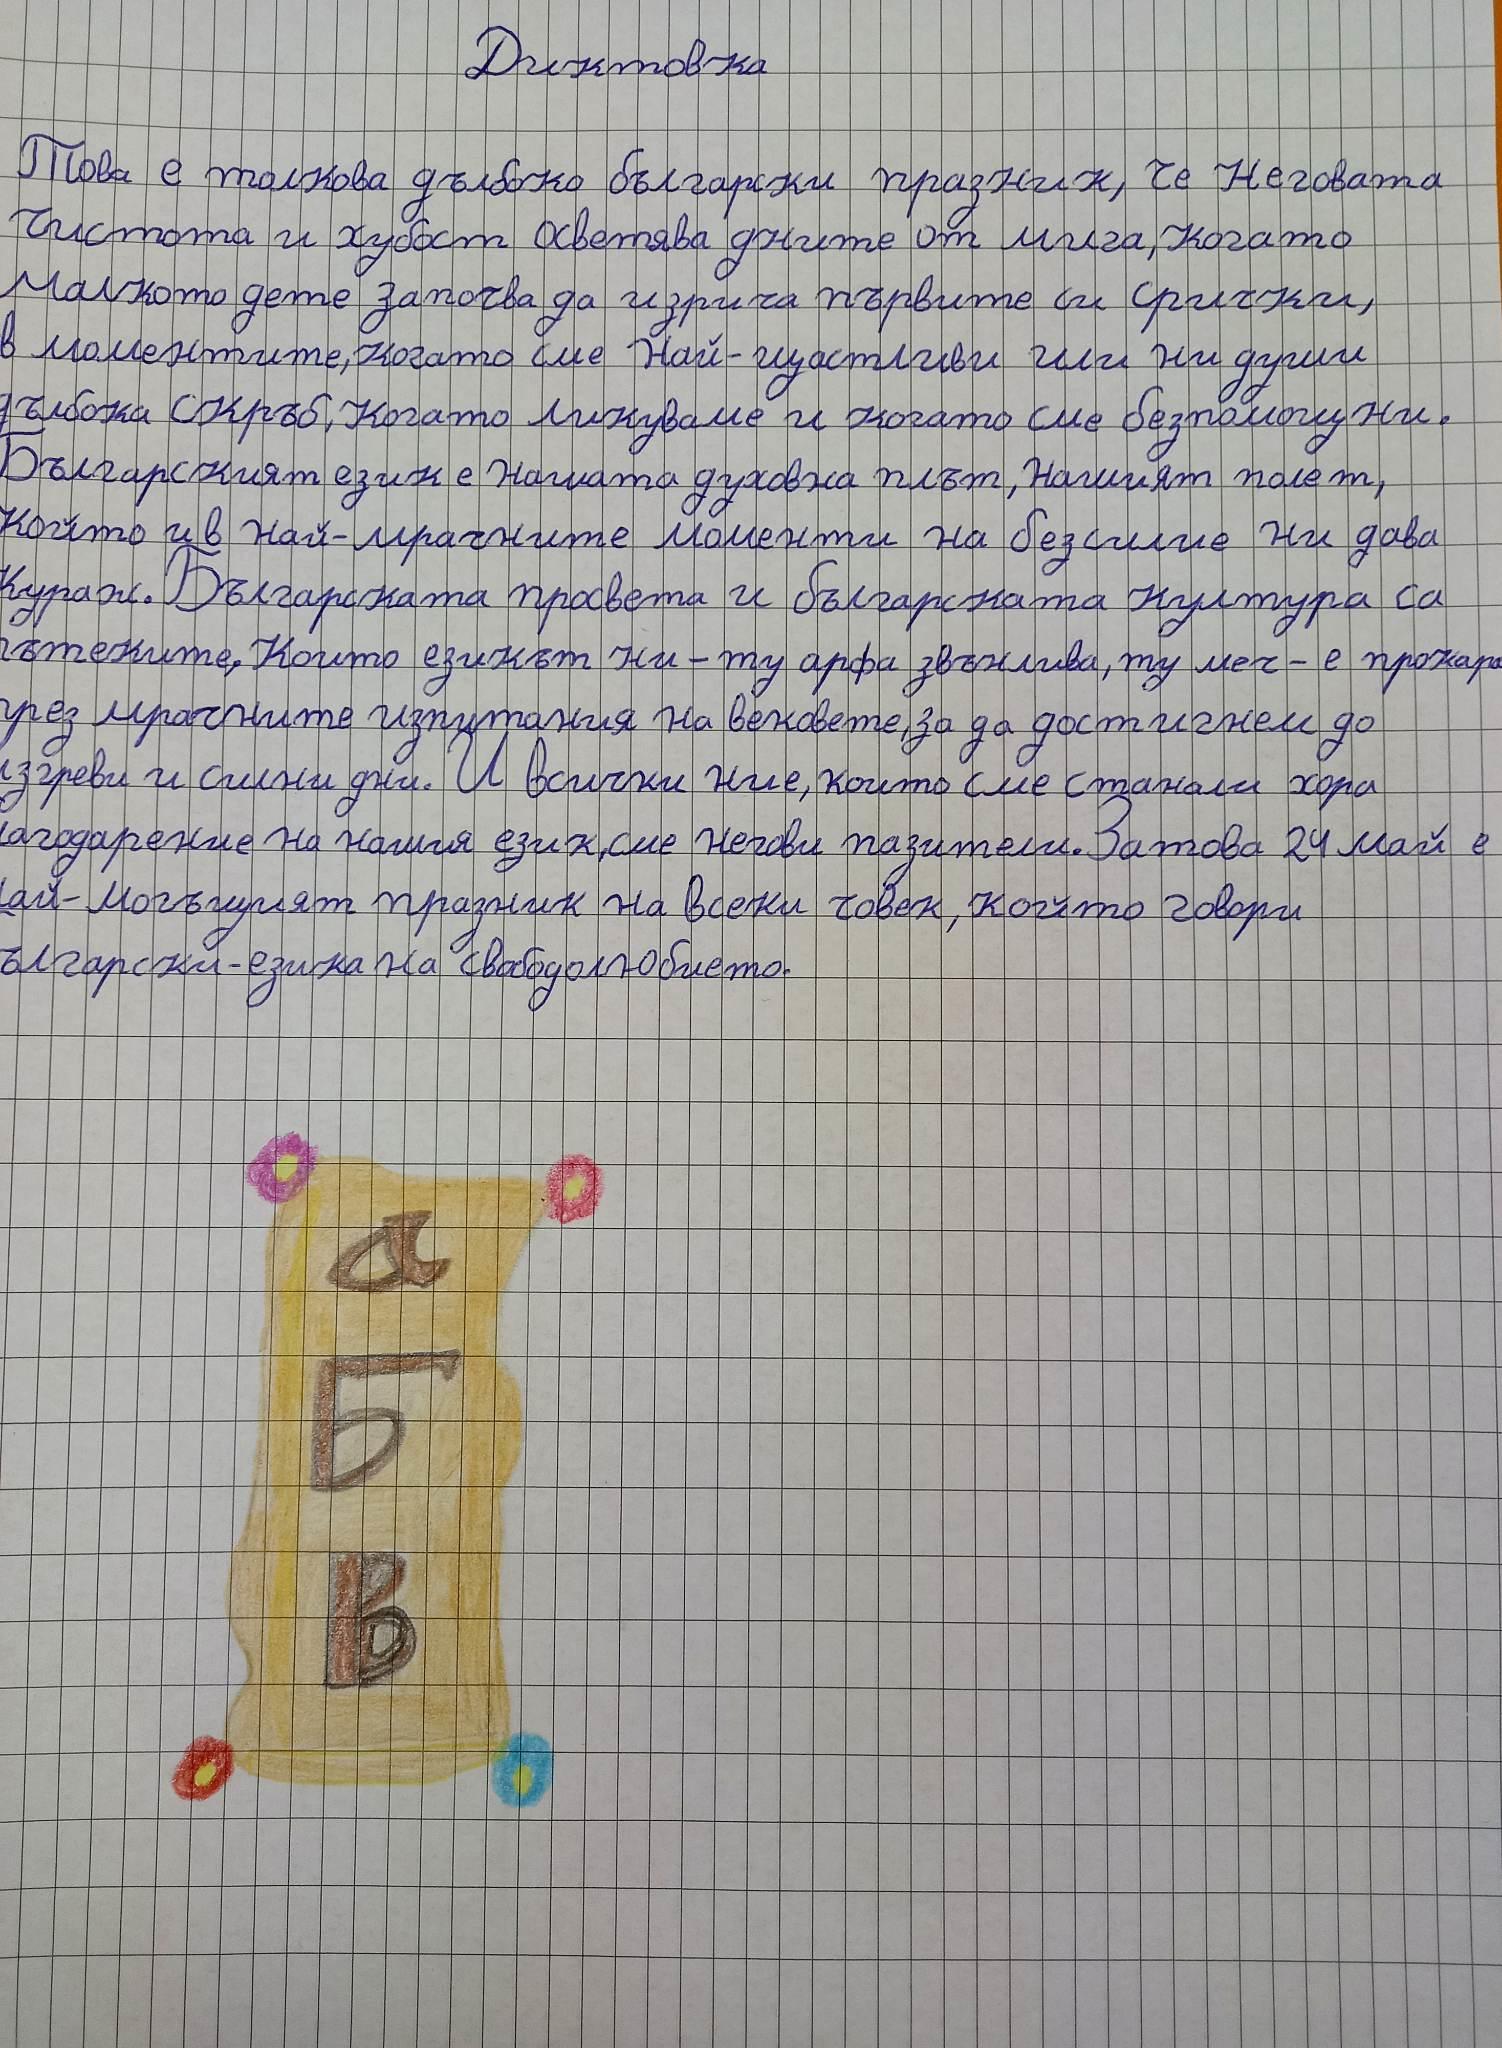 Диктовка
Това е толкова дълбоко български празник, че неговата
чистота и хубост осветява дните от мига, когато
малкото дете започва да изрича първите си срички,
в моментите, когато сме най-щастливи или ни души
дълбока скръб, когато ликуваме и когато сме безпомощни.
Българският език е нашата духовна плът, нашият полет,
който и в най-мрачните моменти на безсилие ни дава
кураж. Българската просвета и българската култура са
пътеките, които езикът ни - ту арфа звънлива, ту меч - е прокара
през мрачните изпитания на вековете, за да достигнем до
изгреви и силни дни. И всички ние, които сме станали хора
лагодарение на нашия език, сме негови пазители. Затова 24 май е
най-могъщият празник на всеки човек, който говори
ългарски - езика на свободолюбието.
а
Б
В